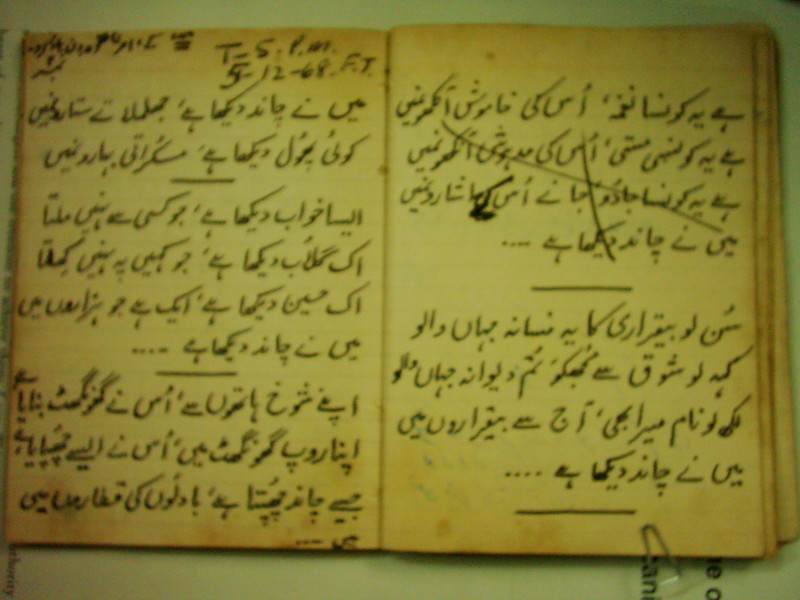 T-5. P.m.
5-12-68. F.T.
میں نے چاند دیکھا ہے، جھلملاتے ستاروں میں
کوئی پھول دیکھا ہے، مسکراتی بہاروں میں
ایسا خواب دیکھا ہے، جو کسی سے نہیں ملتا
اک گلاب دیکھا ہے، جو کہیں پہ نہیں کھلتا
اک حسین دیکھا ہے، ایک ہے جو ہزاروں میں
میں نے چاند دیکھا ہے ....
اپنے شوخ ہاتھوں سے، اُس نے گھونگھٹ بنایا ہے
اپنا روپ گھونگھٹ میں، اُس نے ایسے چھپایا ہے
جیسے چاند چھپتا ہے، بادلوں کی قطاروں میں
میں ....
ہے یہ کونسا نغمہ، اُس کی خاموش آنکھوں میں
ہے یہ کونسی مستی، اُس کی مدہوش آنکھوں میں
ہے یہ کونسا جادُو، جانے اُس کے اشاروں میں
میں نے چاند دیکھا ہے ....
سُن لو بیقراری کا یہ فسانہ جہاں والو
کہہ لو شوق سے مُجھکو، تُم دیوانہ جہاں والو
لکھ لو نام میرا بھی، آج سے بیقراروں میں
میں نے چاند دیکھا ہے ....